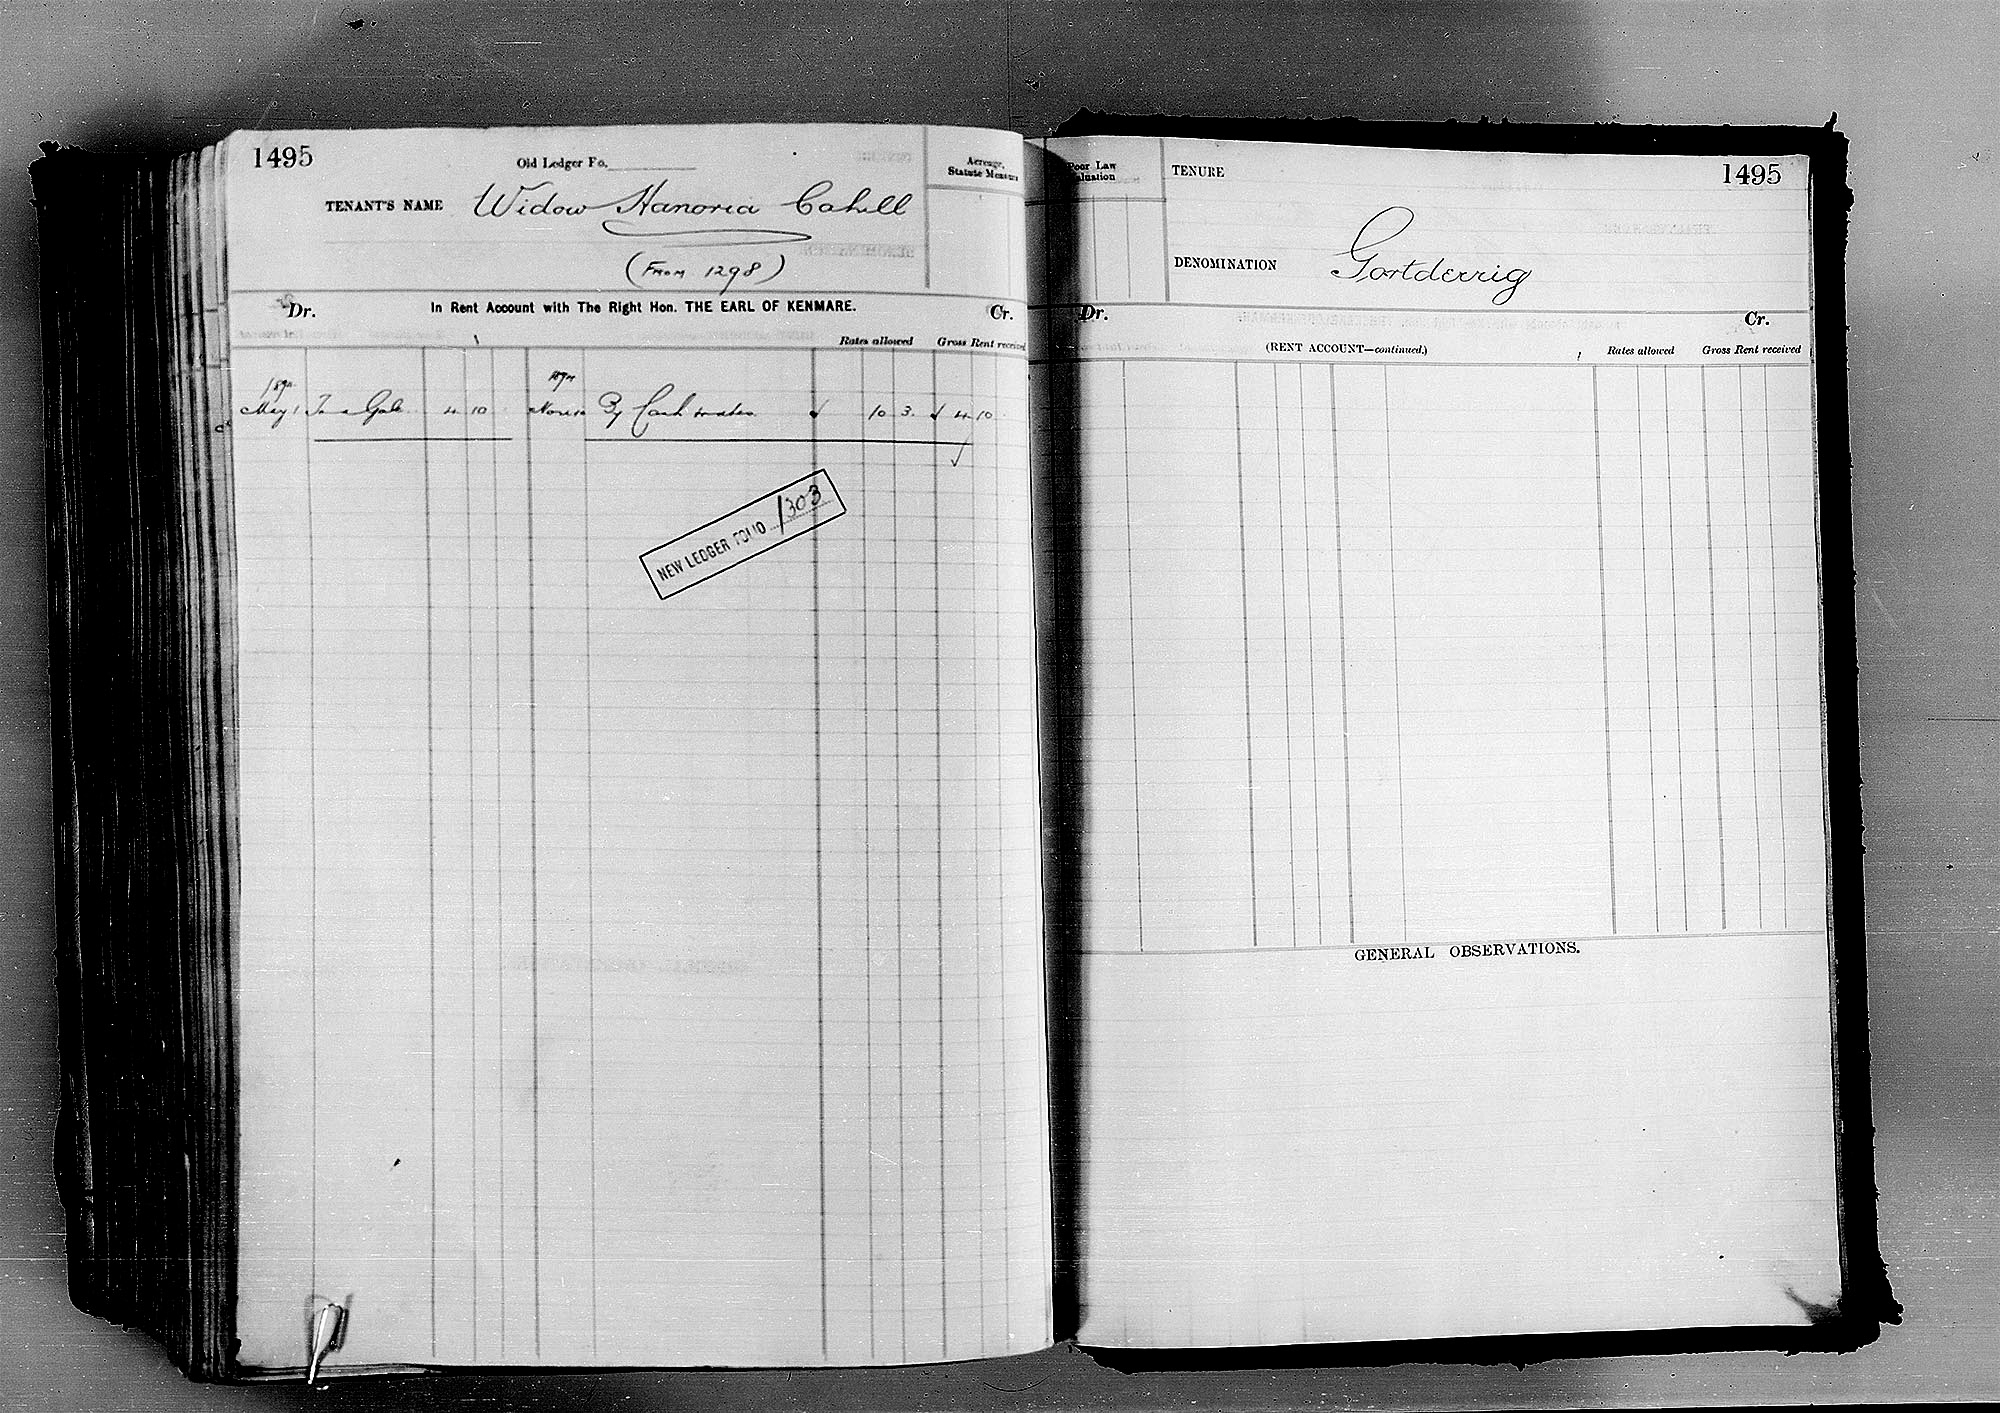 1495
Old Ledger Fo.
Acreage, Statute Measure
TENANT'S NAME Widow Hanoria Cahill
(From 1298)
Dr. In Rent Account with The Right Hon. THE EARL OF KENMARE. Cr.
Rates allowed Gross Rent received
May 1 To a Gale 4 10 By Cash & rates 10 3 4 10
NEW LEDGER FOLIO 1303
Poor Law Valuation
TENURE 1495
DENOMINATION Gortderrig
Dr. Cr.
(RENT ACCOUNT—continued.) Rates allowed Gross Rent received
GENERAL OBSERVATIONS.